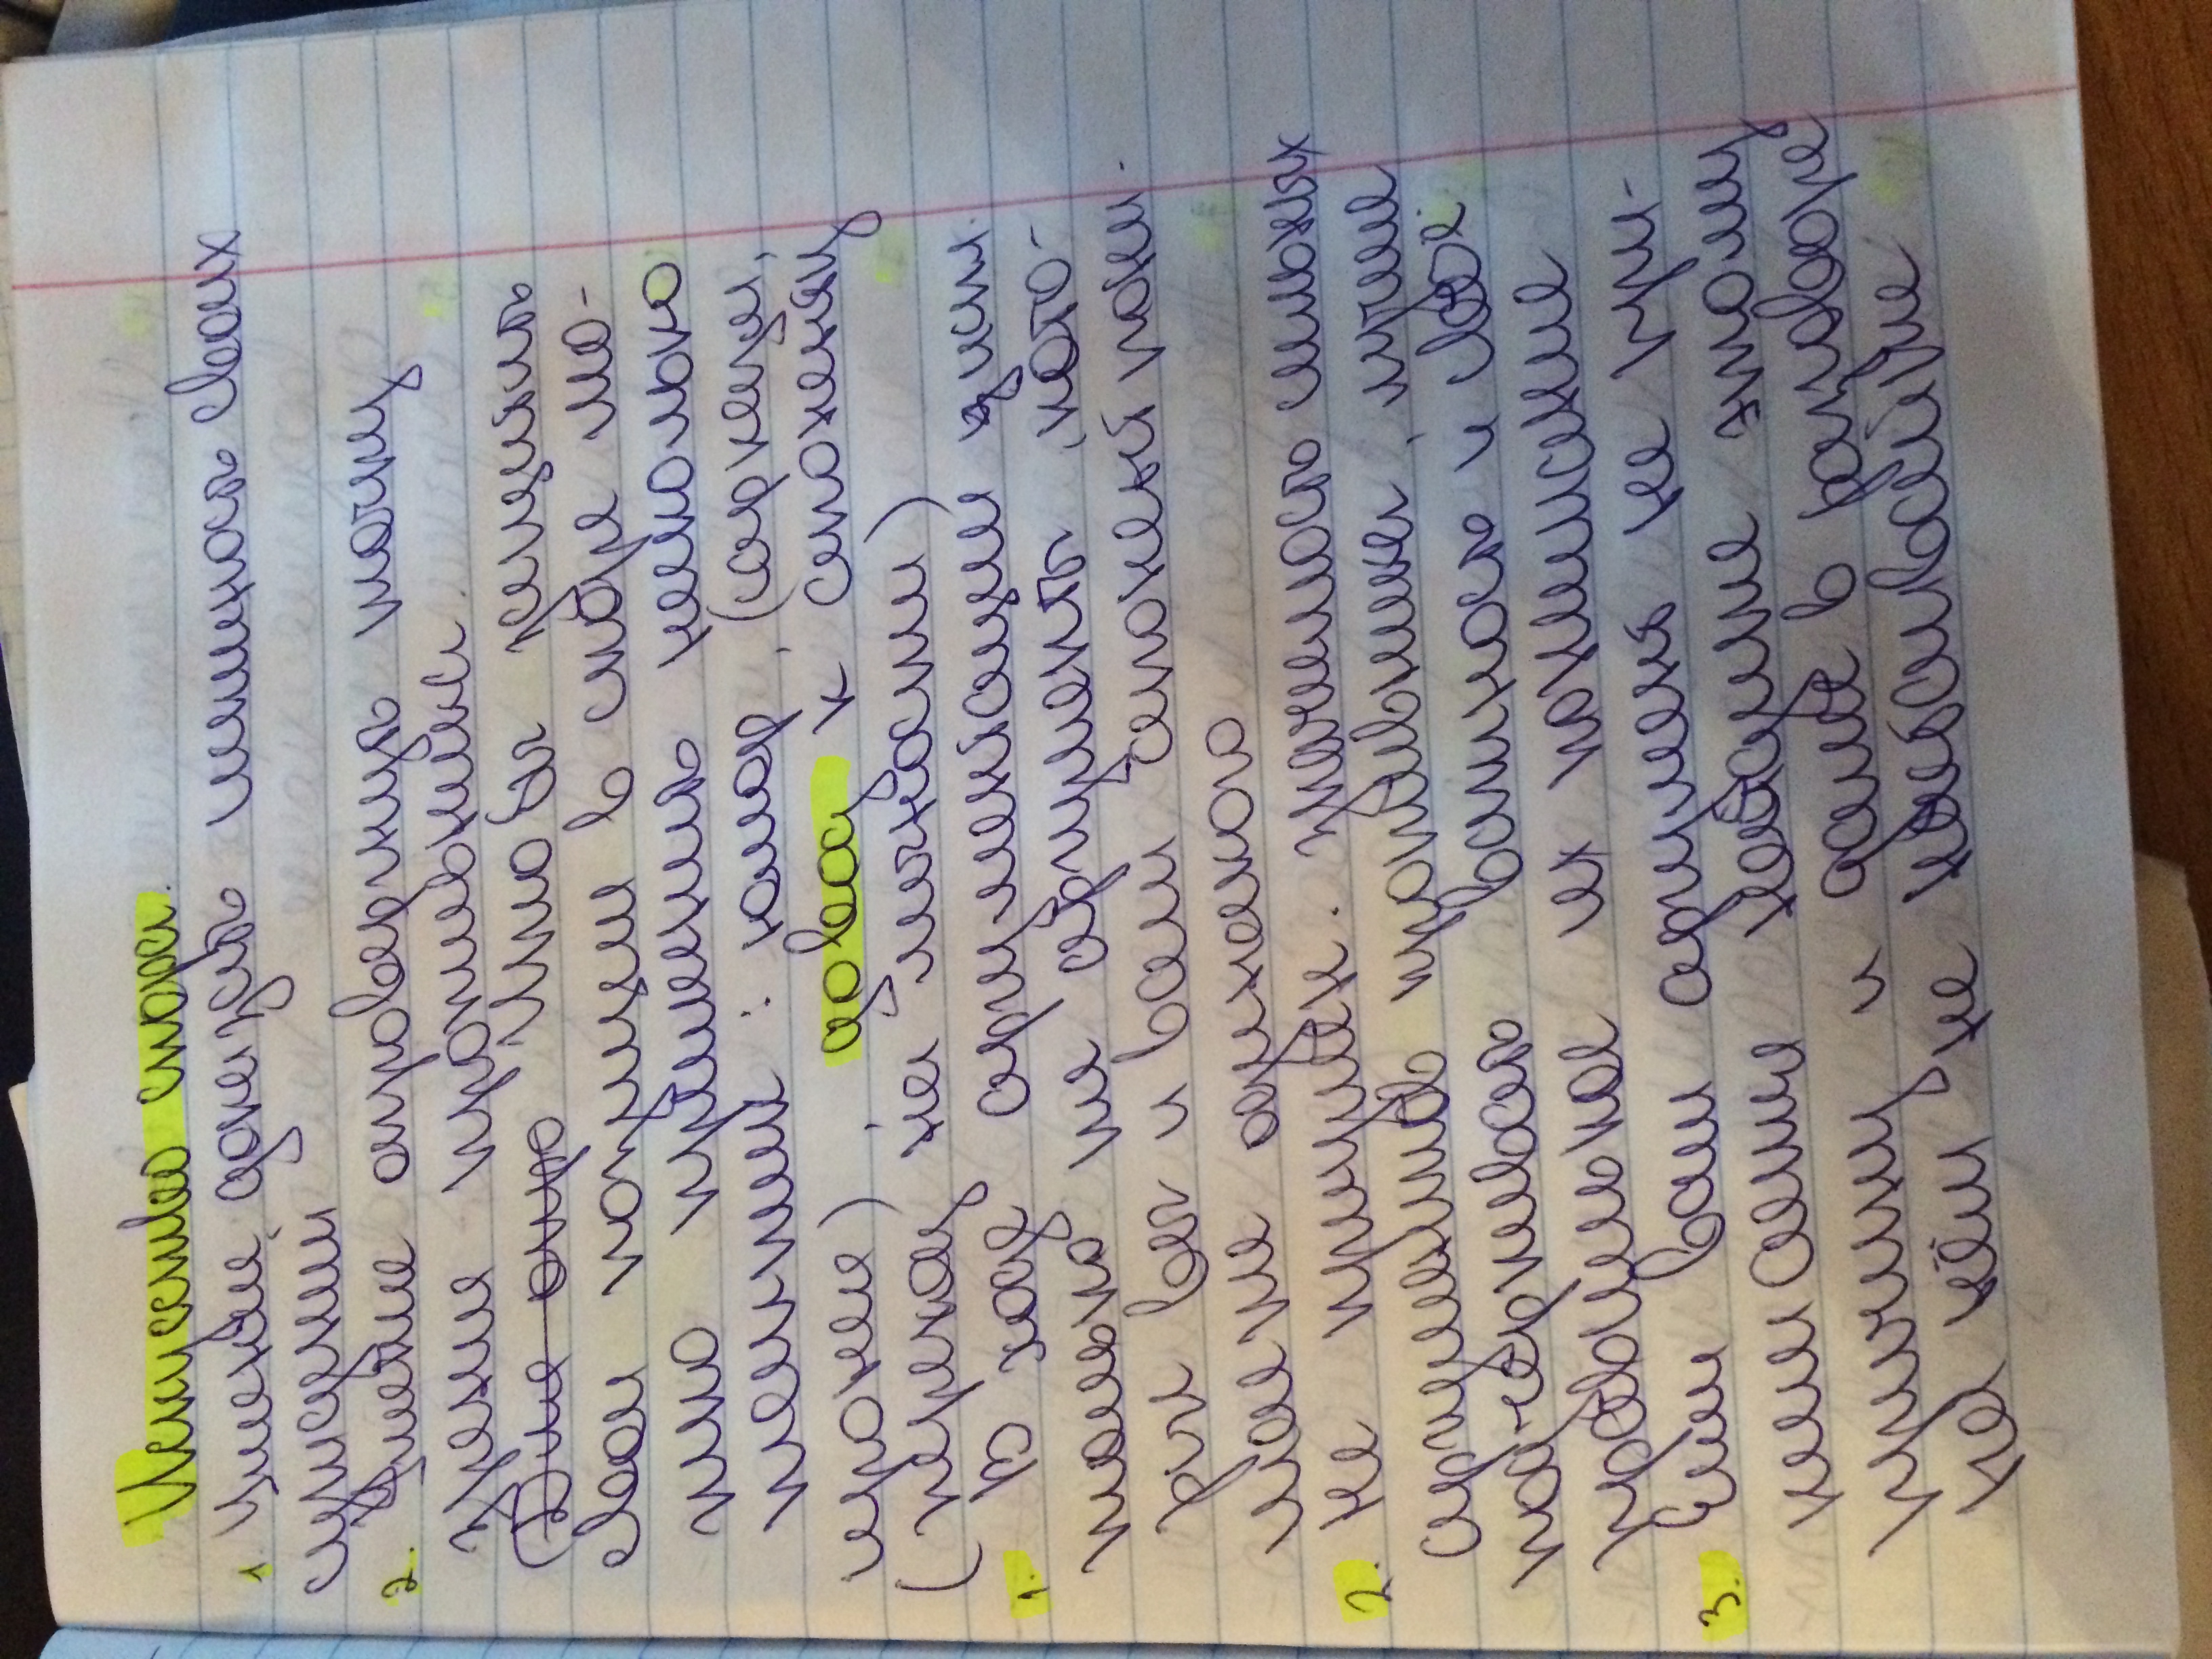 Искусство спора.
1. Умение доказать истинность своих
суждений
2. Умение опровергнуть точку
зрения противника.
Для опро Чтобы защитить
свои позиции в споре мо-
жно применить несколько
тактик : юмор, (сарказм,
ирония), довод к оппоненту
(переход на личности)
1. В ходе аргументации исп.
только те аргументы, кото-
рые вы и ваш опонент пони-
маете одинаково
2. Не приумен. значимость сильных
аргументов противника, лучше
подчеркивать важность и своё
правильное их понимание
3. Если ваш аргумент не при-
нимается найдите этому
причину и далее в разговоре
на нём не настаивайте